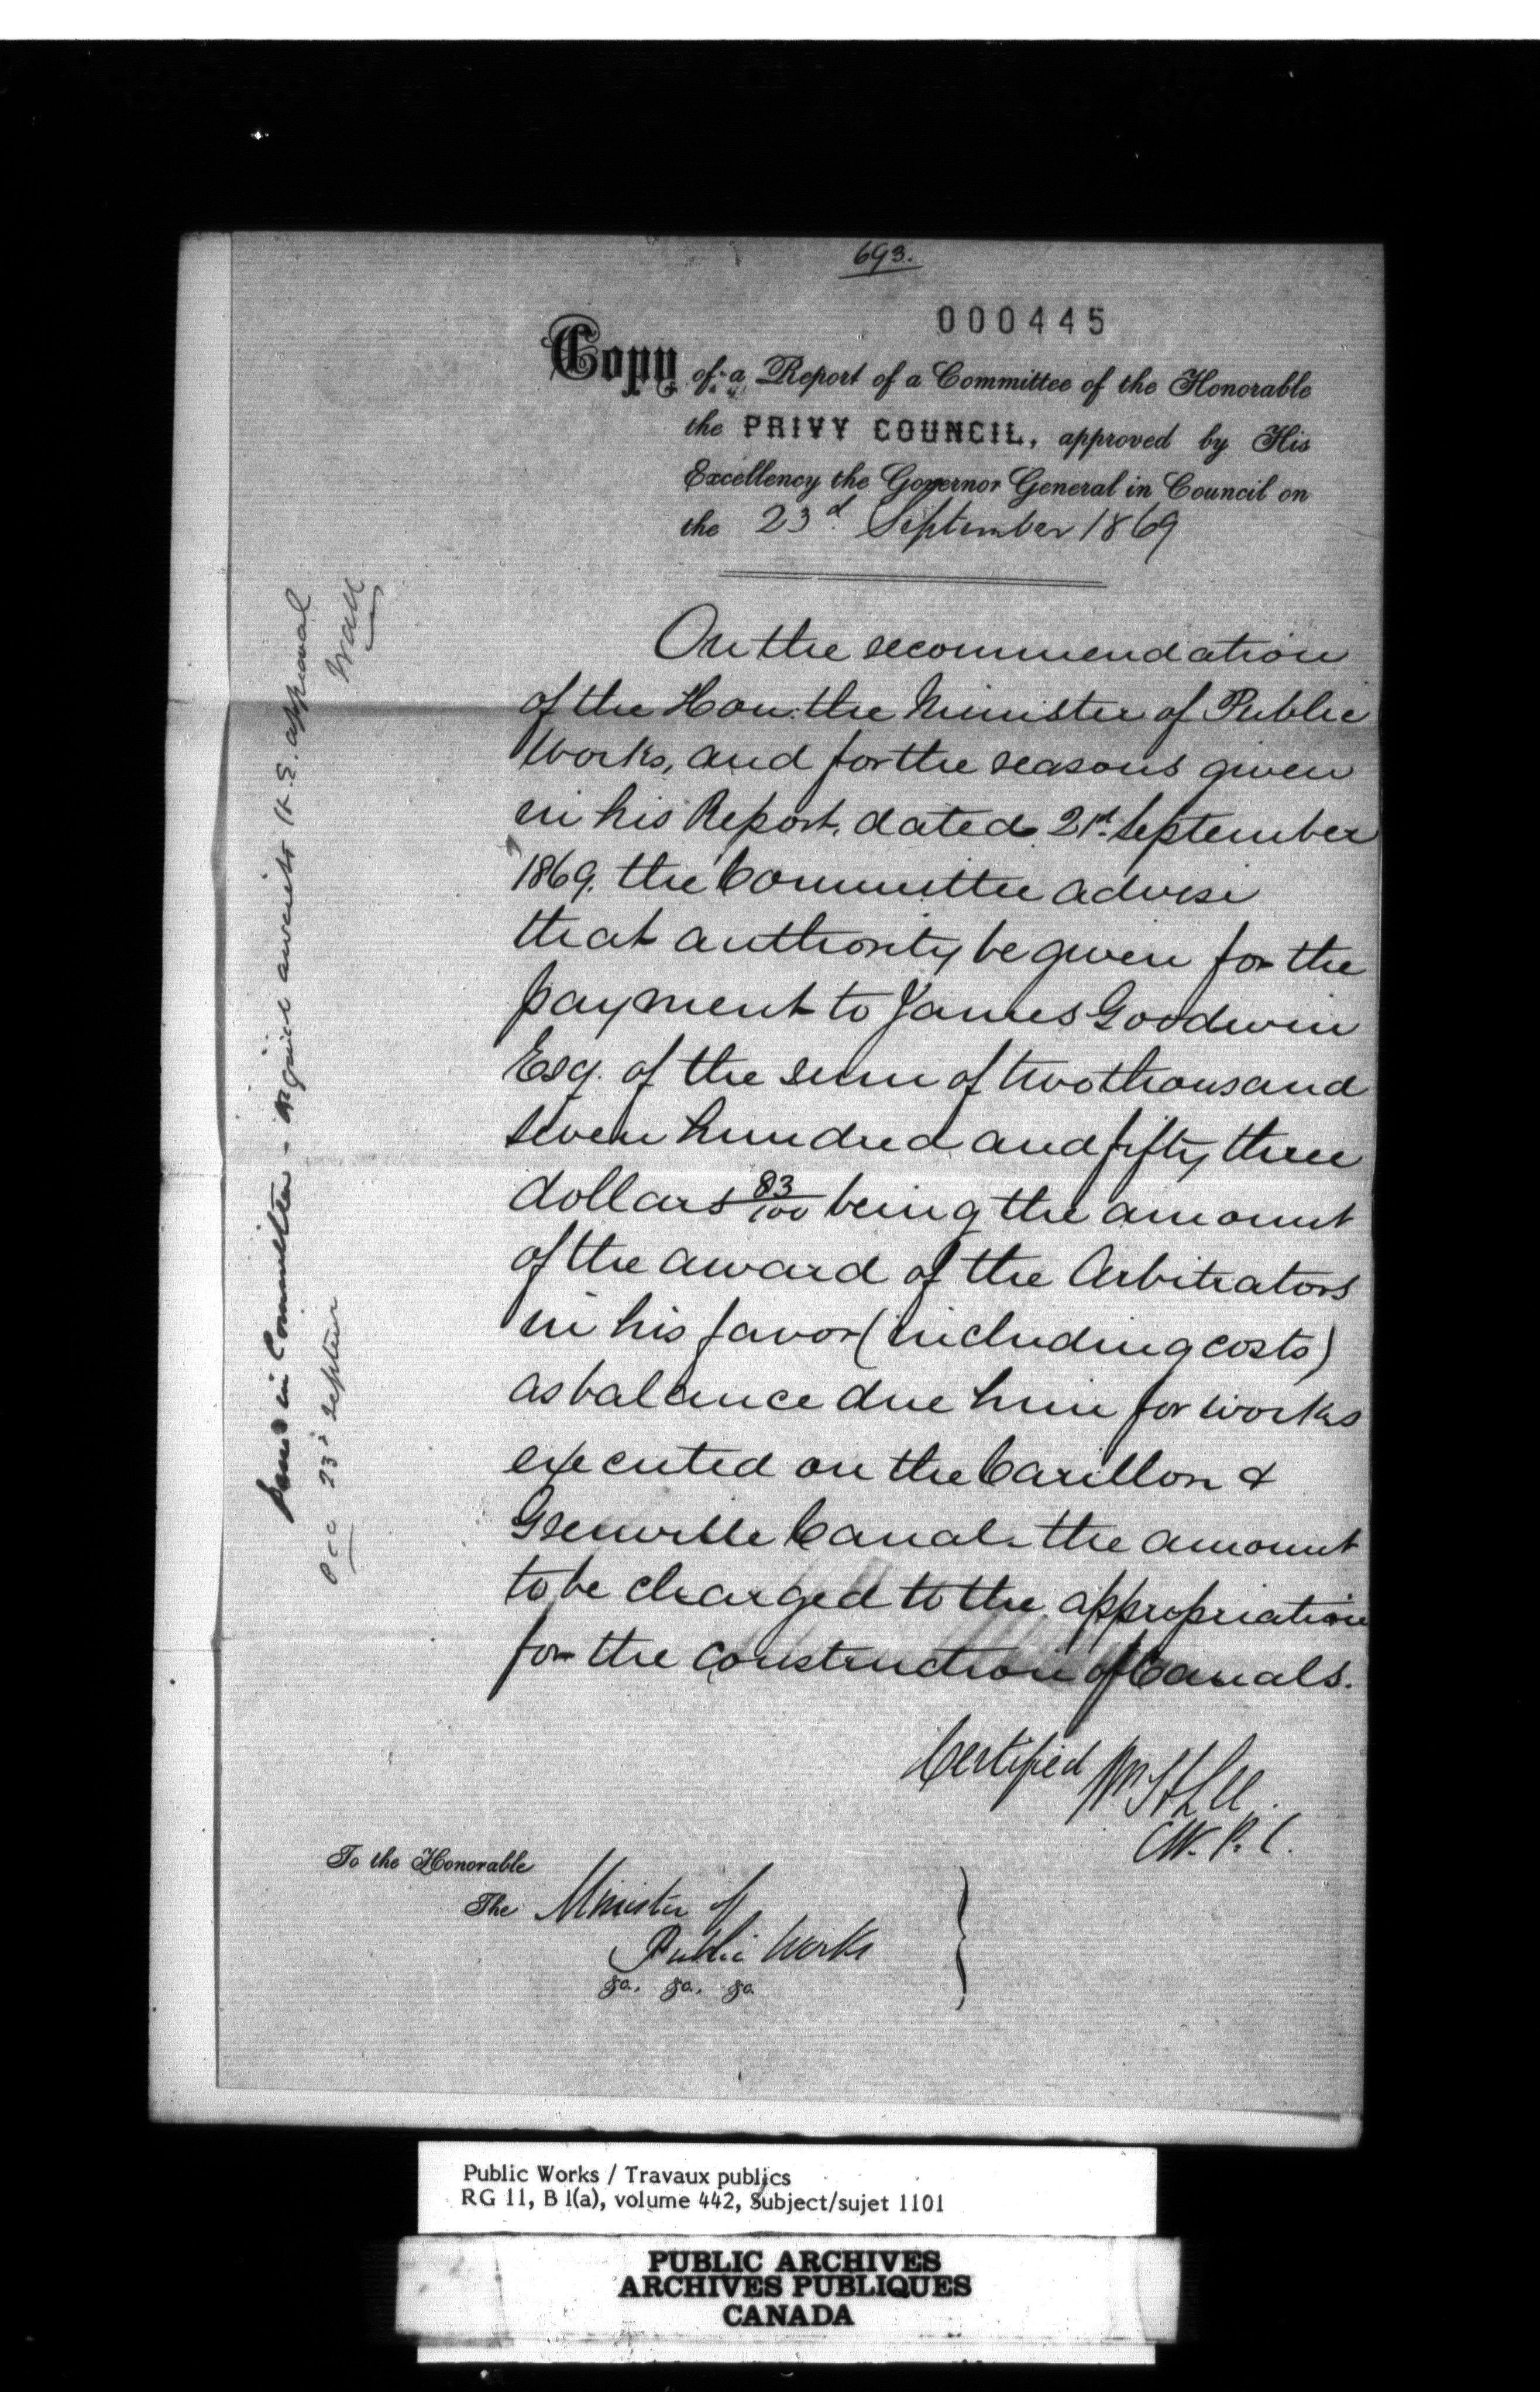 693.
000445
Copy of a Report of a Committee of the Honorable
the PRIVY COUNCIL, approved by His
Excellency the Governor General in Council on
the 23d. September 1869
On the recommendation
of the Hon: the Minister of Public
Works, and for the reasons given
in his Report, dated 21st. September
1869. the Committee advise
that authority be given for the
payment to James Goodwin
Esq. of the sum of two thousand
seven hundred and fifty three
dollars 83/100 being the amount
of the award of the Arbitrators
in his favor (including costs)
as balance due him for works
executed on the Carillon &
Grenville Canal - the amount
to be charged to the appropriation
for the construction of Canals.
Certified Wm H Lee
C.P.C.
To the Honorable
The Minister of
Public Works
&c., &c., &c.
in Committee - awaits H.E. approval
23d Septer
Public Works / Travaux publics
RG 11, B 1(a), volume 442, Subject/sujet 1101
PUBLIC ARCHIVES
ARCHIVES PUBLIQUES
CANADA